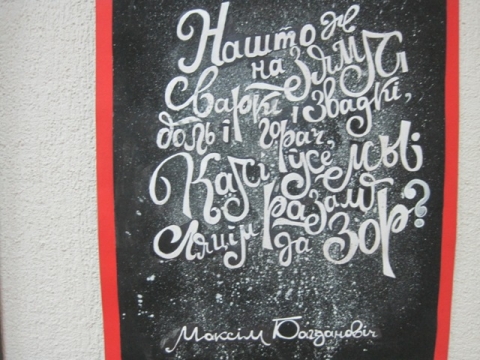 Нашто ж
на зямлі
Сваркі і звадкі,
боль і горач,
Калі ўсе мы
Ляцім разам
да зор?
Максім Багдановіч